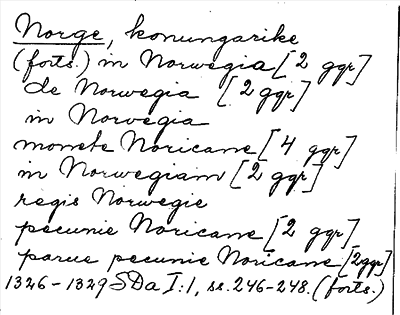 Norge, konungarike
(forts.) in Norwegia [2 ggr]
de Norwegia [2 ggr]
in Norvegia
monete Noricane [4 ggr]
in Norwegiam [2 ggr]
regis Norwegie
pecunie Noricane [2 ggr]
parue pecunie Noricane [2ggr]
1326-1329 SDa I:1, ss. 246-248. (forts.)